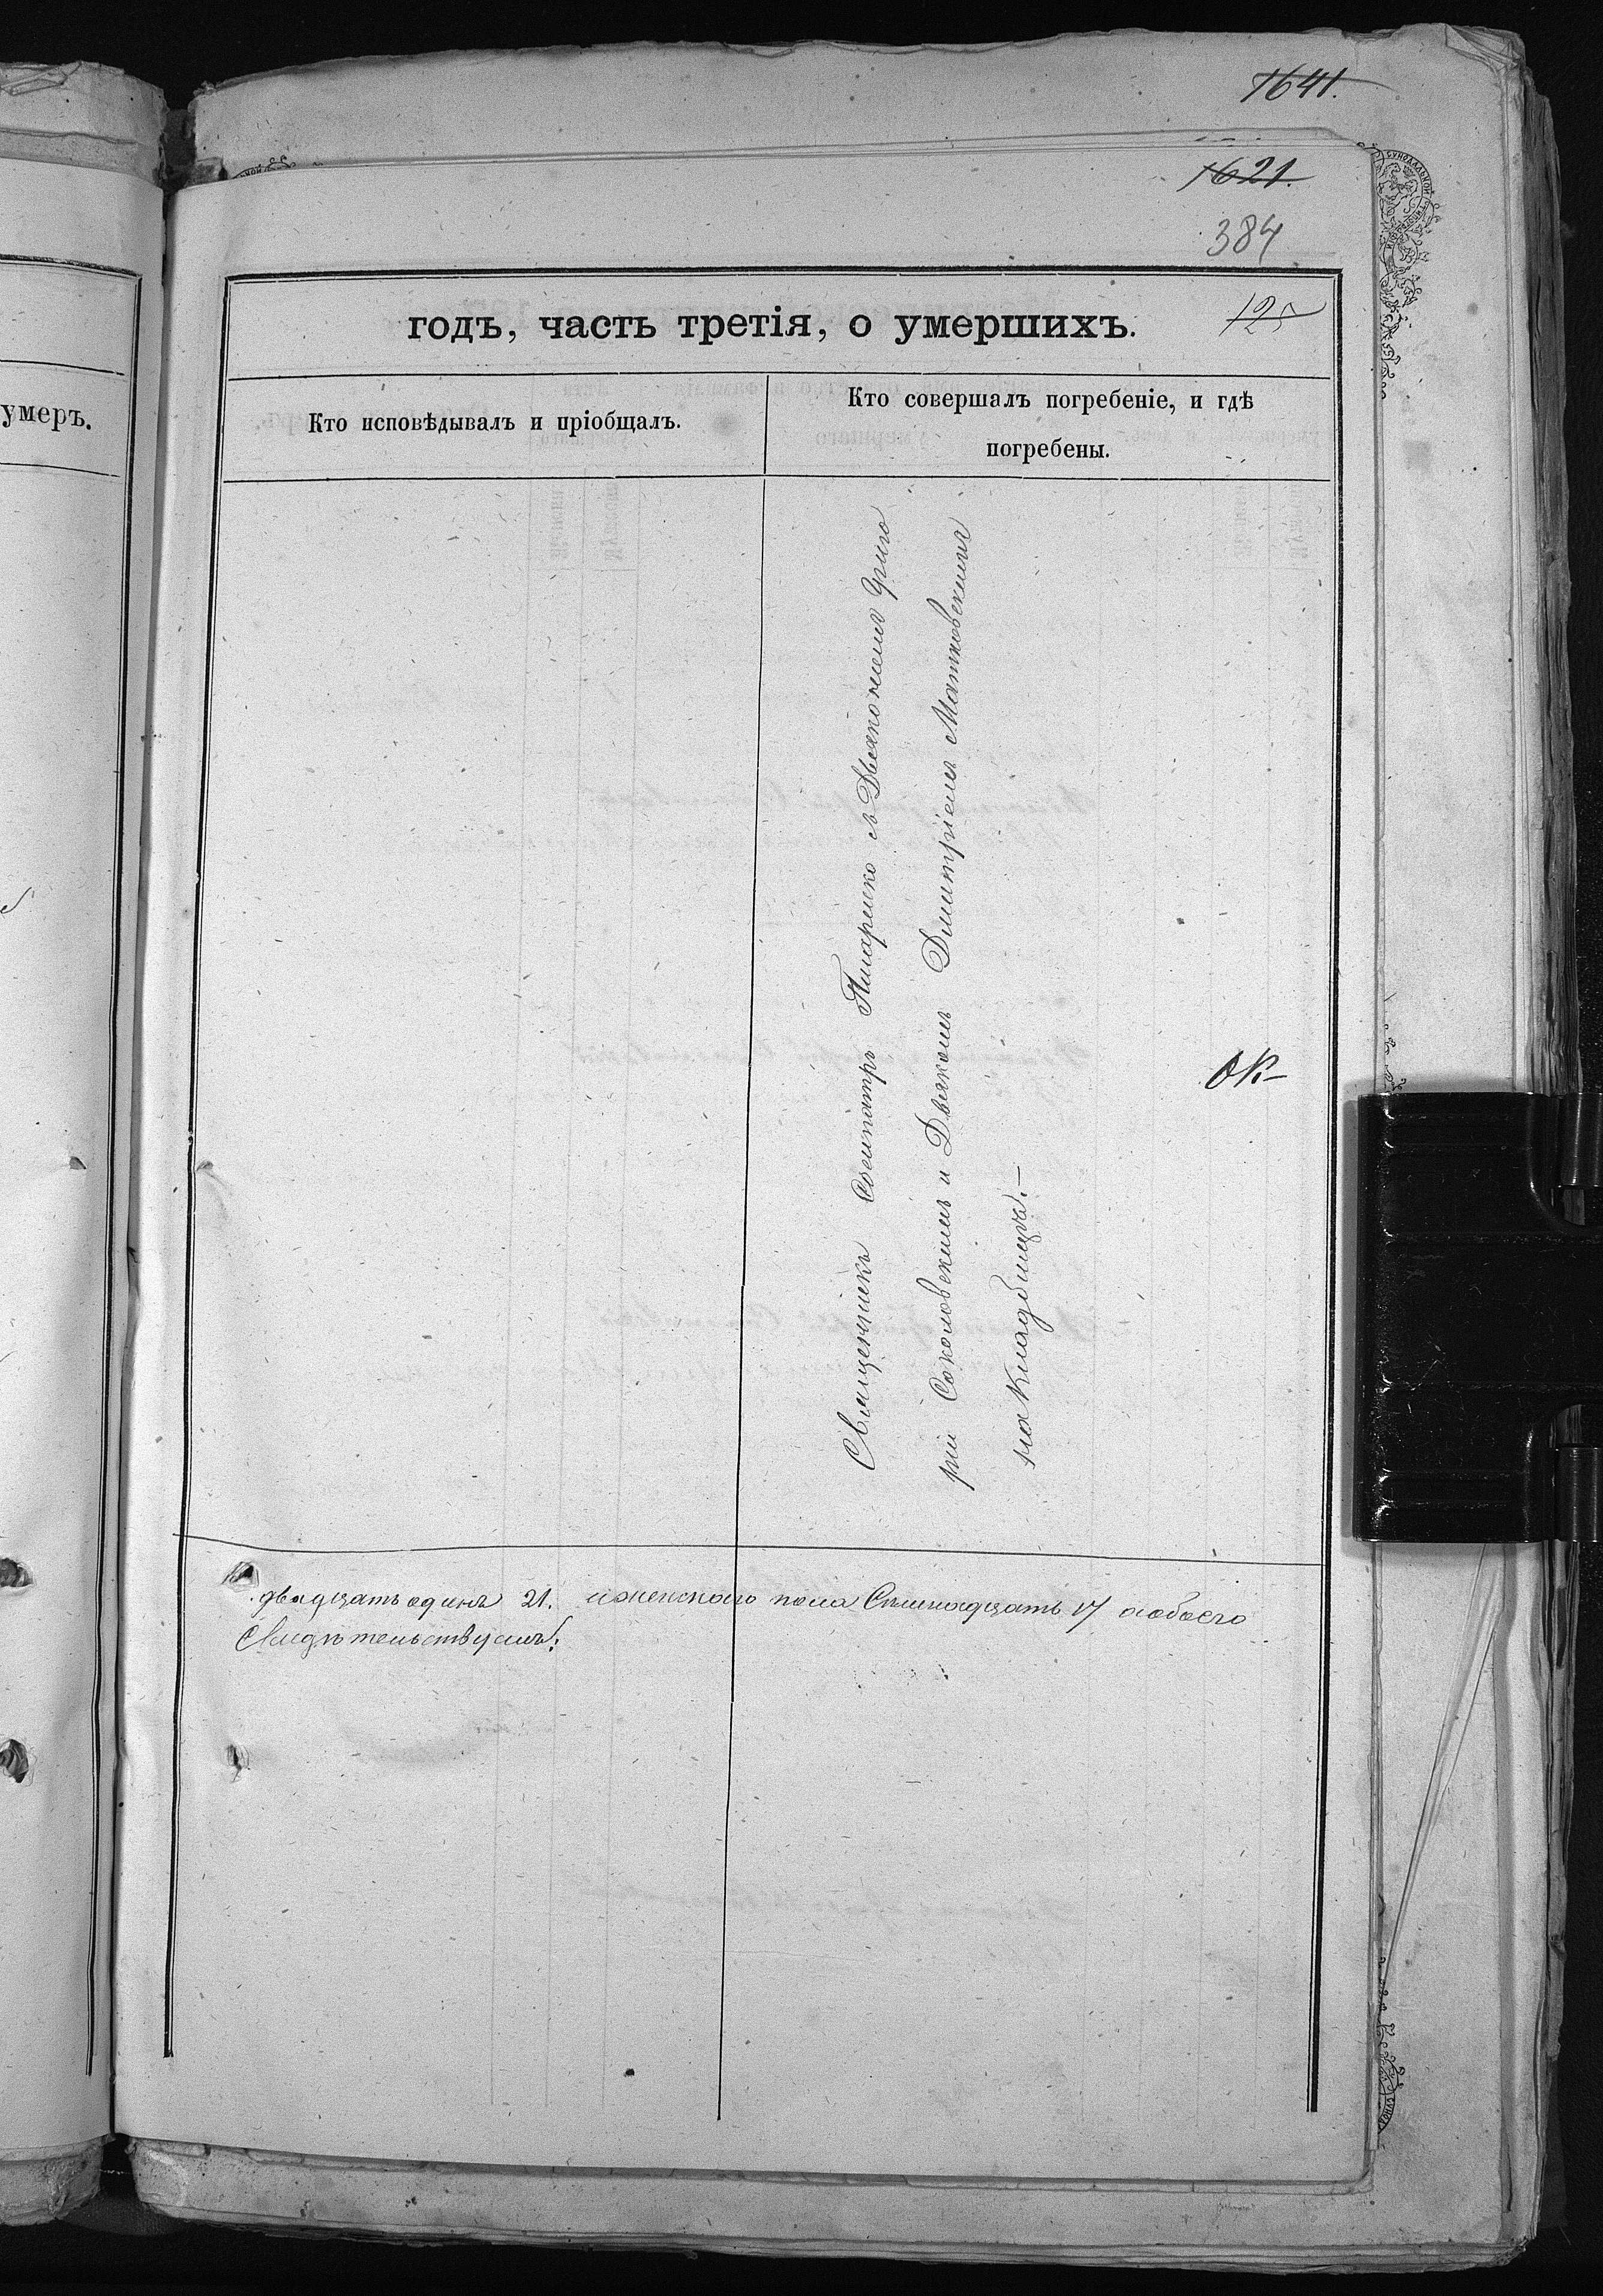 1641.
1621.
384
125
годъ, часть третія, о умершихъ.
умеръ.
Кто исповѣдывалъ и пріобщалъ.
Кто совершалъ погребеніе, и гдѣ
погребены.
Священникъ Сосипатръ Писаренко съ Дьякономъ Григо
ріи Соколовскимъ и Дьякомъ Димитріемъ Матковскимъ
на Кладбищѣ.—
двадцать одинъ 21. и женскаго пола Семнадцать 17 а обоего
Свидѣтельствуемъ: